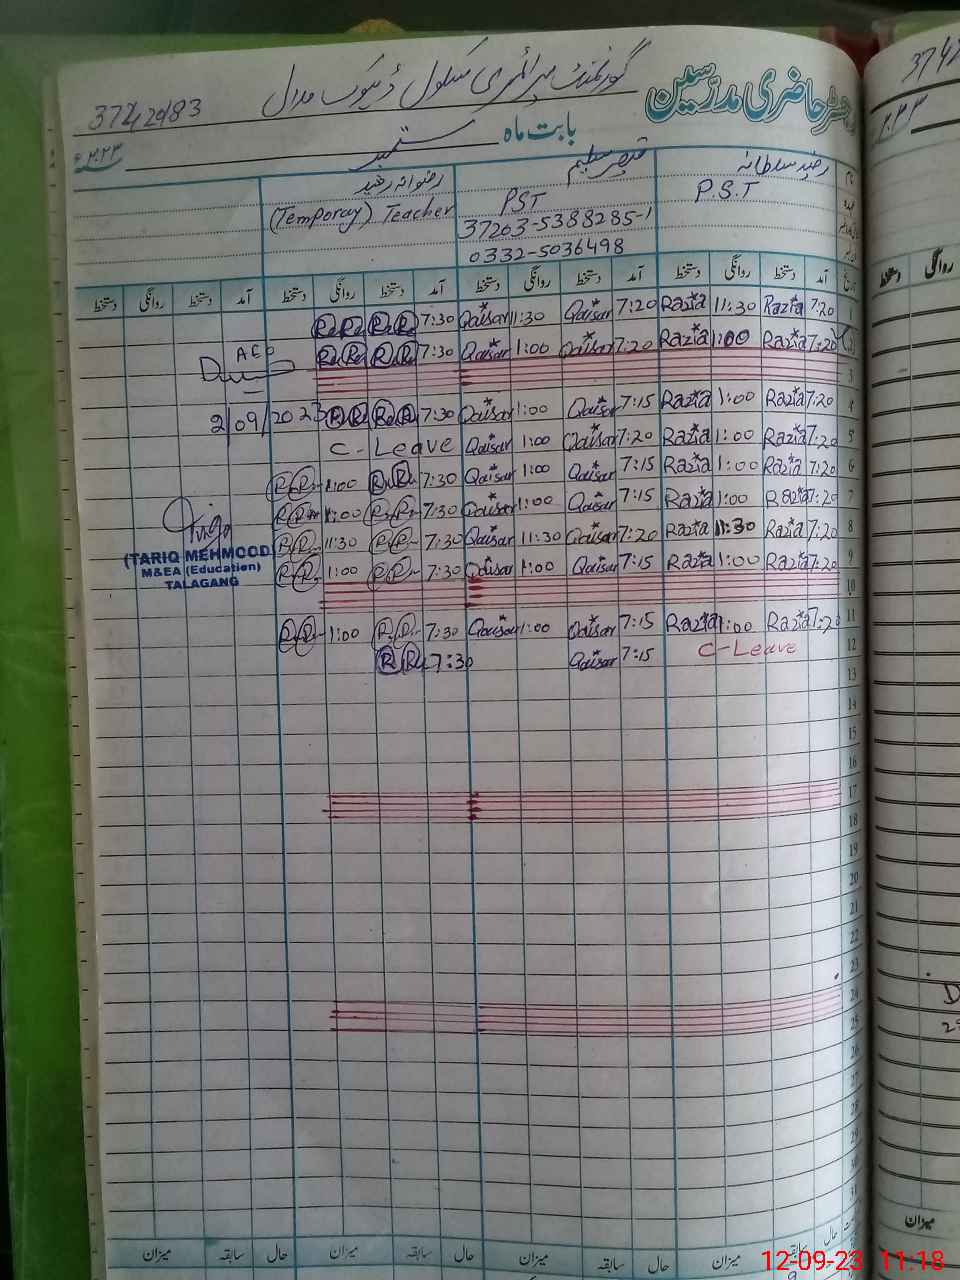 رجسٹر حاضری مدرسین
گورنمنٹ پرائمری سکول
37242083
بابت ماہ ستمبر
۲۰۲۳ء
رضیہ سلطانہ
P.S.T
قیصر سلیم
PST
37203-5388285-1
0332-5036498
رضوانہ رشید
(Temporay) Teacher
تاریخ آمد دستخط روانگی دستخط آمد دستخط روانگی دستخط آمد دستخط روانگی دستخط آمد دستخط روانگی دستخط
1 7:20 Razia 11:30 Razia 7:20 Qaisar 11:30 Qaisar 7:30
2 7:20 Razia 1:00 Razia 7:20 Qaisar 1:00 Qaisar 7:30
AEO
3
4 7:20 Razia 1:00 Razia 7:15 Qaisar 1:00 Qaisar 7:30
2/09/2023
5 7:20 Razia 1:00 Razia 7:20 Qaisar 1:00 Qaisar C-Leave
6 7:20 Razia 1:00 Razia 7:15 Qaisar 1:00 Qaisar 7:30 1:00
7 7:20 Razia 1:00 Razia 7:15 Qaisar 1:00 Qaisar 7:30 1:00
8 7:20 Razia 11:30 Razia 7:20 Qaisar 11:30 Qaisar 7:30 11:30
9 7:20 Razia 1:00 Razia 7:15 Qaisar 1:00 Qaisar 7:30 1:00
(TARIQ MEHMOOD)
M&EA (Education)
TALAGANG
10
11 7:20 Razia 1:00 Razia 7:15 Qaisar 1:00 Qaisar 7:30 1:00
12 C-Leave 7:15 Qaisar 7:30
13
14
15
16
17
18
19
20
21
22
23
24
25
26
27
28
29
30
31
حال سابقہ میزان حال سابقہ میزان حال سابقہ میزان حال سابقہ میزان
12-09-23 11:18
3742
روانگی دستخط
میزان